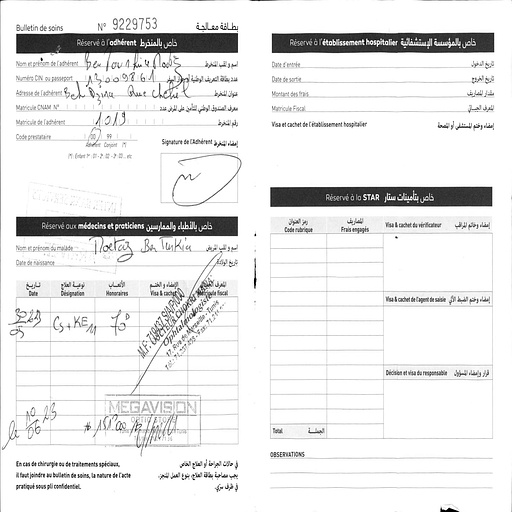 Bulletin de soins N° 9229753 بطاقة معالجة
Réservé à l'adhérent خاص بالمنخرط
Nom et prénom de l'adhérent Ben Turkia Moetaz اسم و لقب المنخرط
Numéro CIN ou passeport 13009861 عدد بطاقة التعريف الوطنية أو جواز السفر
Adresse de l'adhérent عنوان المنخرط
Matricule CNAM N° معرف الصندوق الوطني للتأمين على المرض عدد
Matricule de l'adhérent 1019 رقم المنخرط
Code prestataire 00 99
Adhérent Conjoint (*)
(*) : Enfant 1er : 01 - 2e : 02 - 3e : 03 ... etc
Signature de l'Adhérent إمضاء المنخرط
Réservé aux médecins et praticiens خاص بالأطباء والممارسين
Nom et prénom du malade Moetaz Ben Turkia اسم و لقب المريض
Date de naissance تاريخ الولادة
تاريخ نوعية العلاج الأتعاب الإمضاء و الختم المعرف الجبائي
Date Désignation Honoraires Visa & cachet Matricule fiscal
30 23
05 Cs + KE 70D
Ophtalmologiste
17, Rue de Marseille - Tunis
MEGAVISION
le 10 23
06
En cas de chirurgie ou de traitements spéciaux,
il faut joindre au bulletin de soins, la nature de l'acte
pratiqué sous pli confidentiel.
في حالات الجراحة أو العلاج الخاص
يجب مصاحبة بطاقة العلاج، بنوع العمل المنجز،
في ظرف سري.
Réservé à l'établissement hospitalier خاص بالمؤسسة الإستشفائية
Date d'entrée تاريخ الدخول
Date de sortie تاريخ الخروج
Montant des frais. مقدار المصاريف
Matricule Fiscal المعرف الجبائي
Visa et cachet de l'établissement hospitalier إمضاء وختم المستشفى أو المصحة
Réservé à la STAR خاص بتأمينات ستار
رمز العنوان المصاريف
Code rubrique Frais engagés Visa & cachet du vérificateur إمضاء وخاتم المراقب
Visa & cachet de l'agent de saisie إمضاء وختم الضبط الآلي
Décision et visa du responsable قرار وإمضاء المسؤول
Total الجملة
OBSERVATIONS